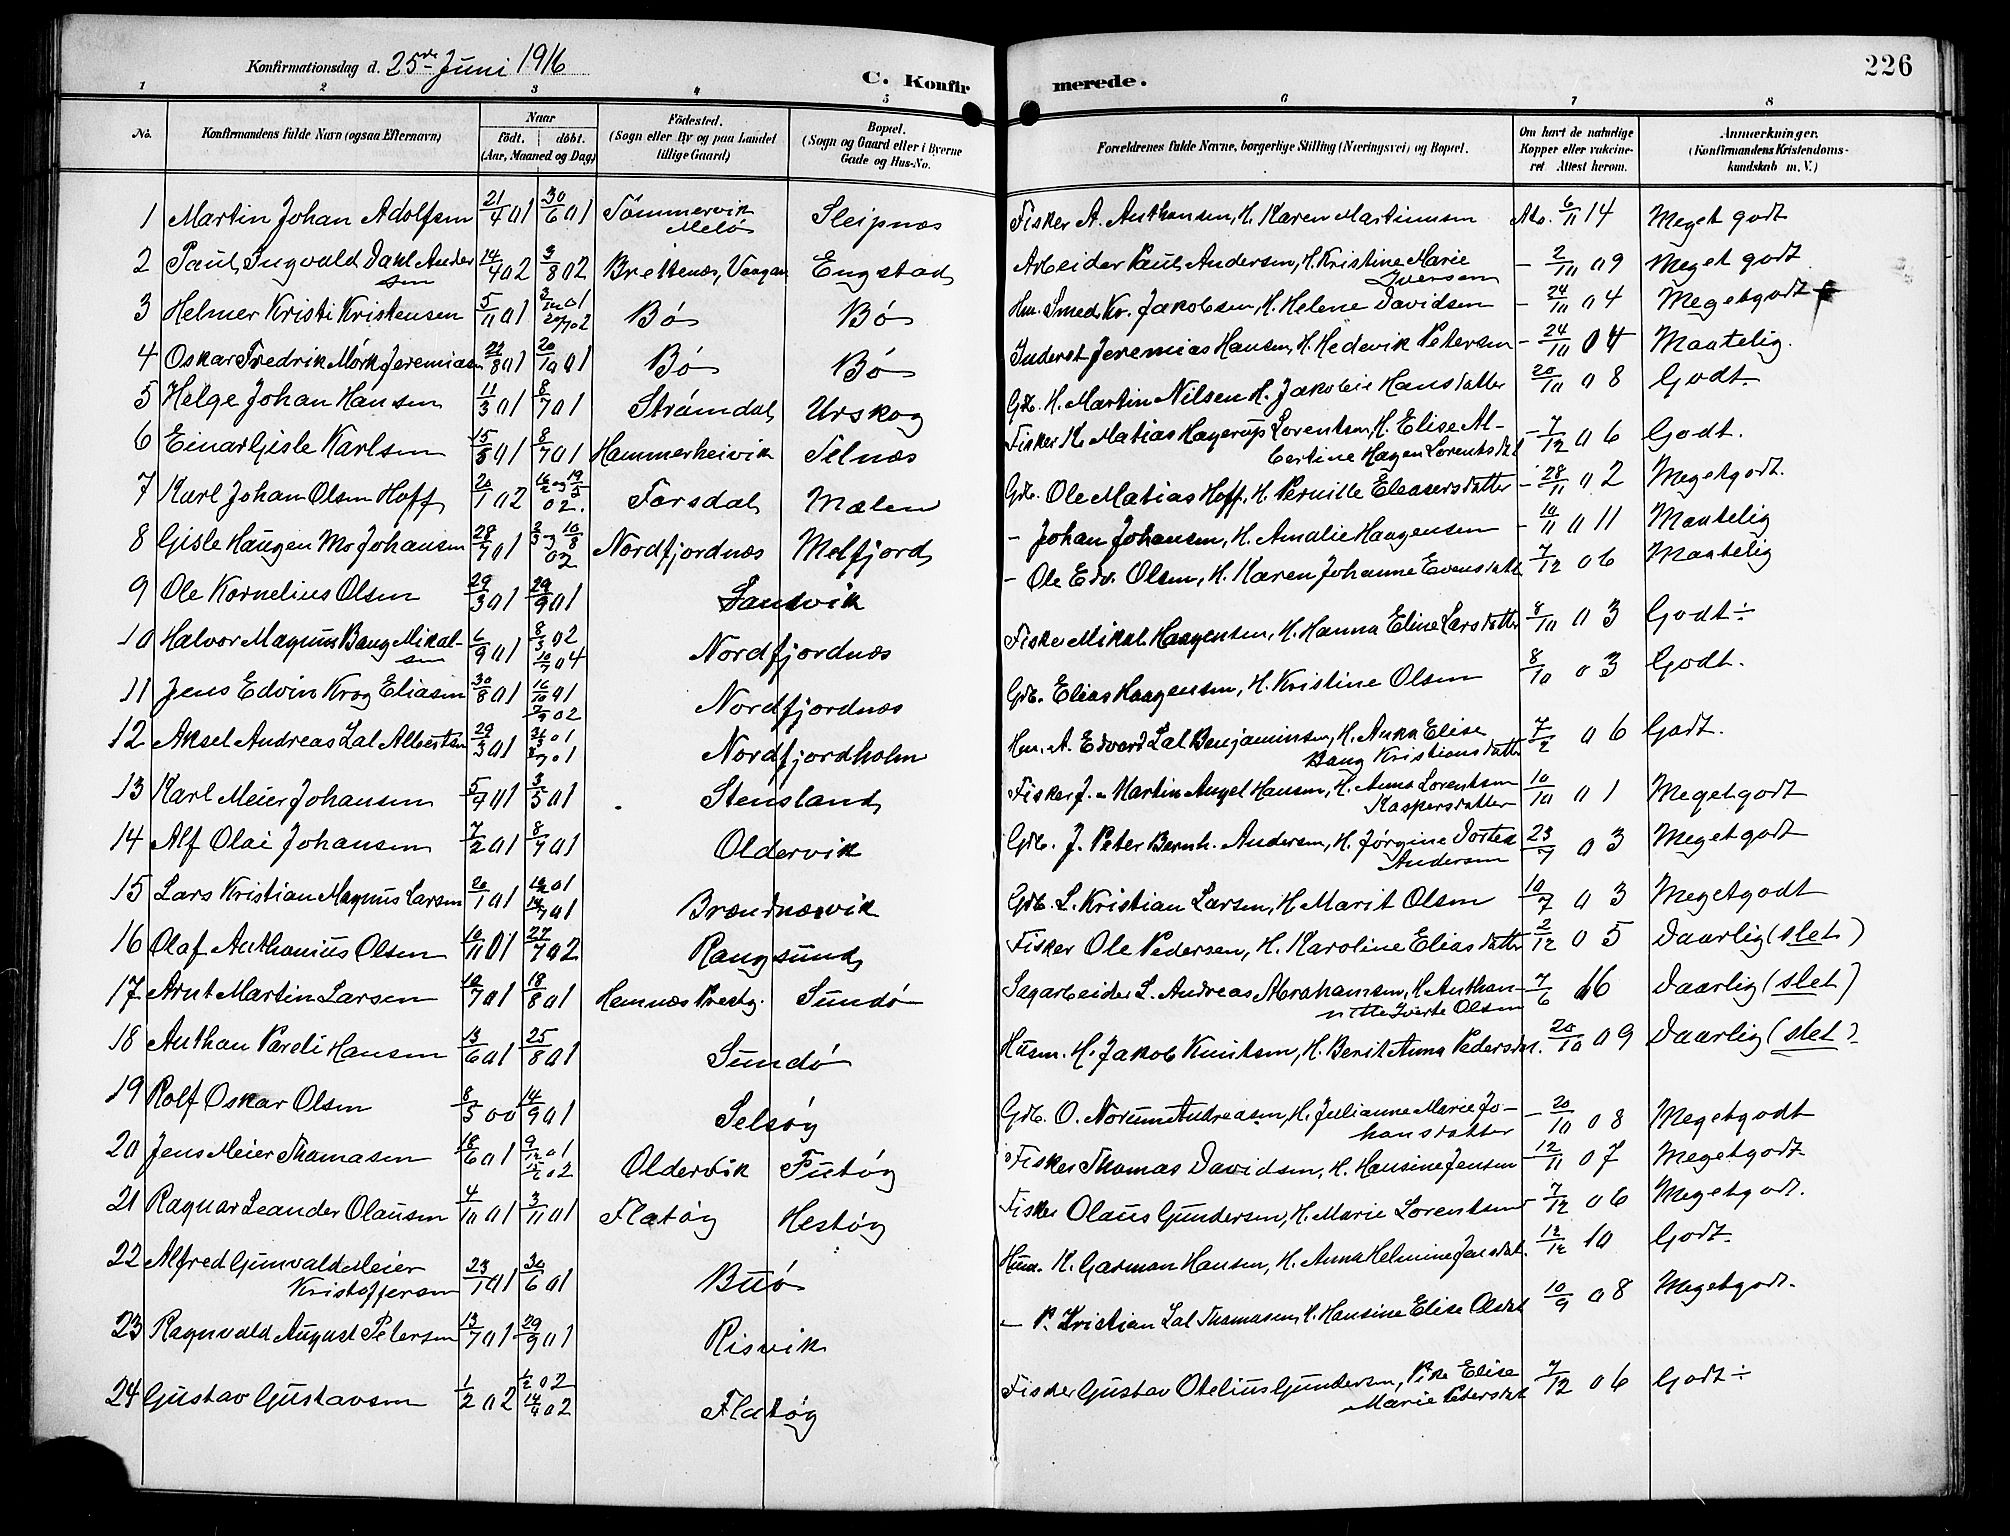 Konfirmationsdag d. 25de Juni 1916
C. Konfirmerede.
226
1 2 3 4 5 6 7 8
No. Konfirmandens fulde Navn (ogsaa Efternavn) Naar födt. döbt. (Aar, Maaned og Dag) Födested. (Sogn eller By og paa Landet tillige Gaard) Bopæl. (Sogn og Gaard eller i Byerne Gade og Hus-No. Forældrenes fulde Navne, borgerlige Stilling (Næringsvei) og Bopæl. Om havt de naturlige Kopper eller vakcineret Attest herom. Anmærkninger. (Konfirmandens Kristendomskundskab m. V.)
1 Martin Johan Adolfsen 21/4 01 30/6 01 Tömmervik Melö Sleipnæs Fisker A. Anthonsen, H. Karen Martinusen Ato. 6/11 14 Meget godt
2 Paul Ingvald Dahl Andersen 14/4 02 3/8 02 Brettenæs, Vaagan Engstad Arbeider Paul Andersen, H. Kristine Marie Iversen - 2/10 09 Meget godt
3 Helmer Kristi Kristensen 5/11 01 Bö Bö Hm. Smed Kr. Jakobsen H. Helene Davidsen - 24/10 04 Megetgodt
4 Oskar Fredrik Mörk Jeremiasen 22/8 01 20/10 01 Bö Bö Inderst Jeremias Hansen, H. Hedevik Petersen - 24/10 04 Maatelig.
5 Helge Johan Hansen 11/3 01 8/7 01 Strömdal Urskog Gdb. H. Martin Nilsen H. Jakobie Hansdatter 20/10 08 Godt.
6 Einar Gisle Karlsen 15/5 01 8/7 01 Hammerheivik Selnæs Fisker K. Matias Hagerup Lorentsen, H. Elise Albertine Hagen Lorentsdat - 7/12 06 Godt.
7 Karl Johan Olsen Hoff 20/1 02 16/2 og 19/5 02. Forsdal Mælen Gdb. Ole Matias Hoff, H. Pernille Eleasersdatter - 28/11 02 Megetgodt.
8 Gisle Haugen Mo Johansen 28/7 01 2/3 og 10/8 02 Nordfjordnæs Melfjord - Johan Johansen, H. Amalie Haagensen - 10/11 011 Maatelig
9 Ole Kornelius Olsen 29/3 01 29/9 01 Sandvik - Ole Edv. Olsen, H. Karen Johanne Evensdatt 7/12 06 Maatelig
10 Halvor Magnus Bang Mikalsen 6/9 01 8/3 02 10/7 04 Nordfjordnæs Fisker Mikal Haagensen, H. Hanna Eline Larsdatter 8/10 03 Godt ÷
11 Jens Edvin Krog Eliasen 30/8 01 16/10 01 7/9 02 Nordfjordnæs Gdb. Elias Haagensen, H. Kristine Olsen 8/10 03 Godt.
12 Aksel Andreas Lal Albertsen 29/3 01 31/3 01 8/7 01 Nordfjordholm Hm. A. Edvard Lal Benjaminsen, H. Anna Elise Bang Kristiansdatter 7/2 06 Godt.
13 Karl Meier Johansen 5/4 01 3/5 01 Stensland Fisker J. Martin Angel Hansen, H. Anna Lorentsen Kaspersdatter 10/10 01 Megetgodt
14 Alf Olai Johansen 7/2 01 8/7 01 Oldervik Gdb. J. Peter Bernh. Andersen, H. Jørgine Dortea Andersen 23/7 03 Megetgodt
15 Lars Kristian Magnus Larsen 20/1 01 10/2 01 14/7 01 Brændnæsvik Gdb. L. Kristian Larsen, H. Marit Olsen 10/7 03 Megetgodt
16 Olaf Anthonius Olsen 10/11 01 27/7 02 Rangsund Fisker Ole Pedersen, H. Karoline Eliasdatter 2/12 05 Daarlig (slet)
17 Arnt Martin Larsen 10/7 01 18/8 01 Hemnæs Prestg. Sundö Sagarbeider L. Andreas Abrahamsen, H. Anthonnette Iverte Olsen 7/6 16 Daarlig (slet)
18 Anthon Pareli Hansen 13/6 01 25/8 01 Sundö Husm. H. Jakob Knutsen, H. Berit Anna Pedersdat. 20/10 09 Daarlig (slet)
19 Rolf Oskar Olsen 8/5 00 14/9 01 Selsöy Gdb. O. Norum Andreasen, H. Julianne Marie Johansdatter - 20/10 08 Megetgodt
20 Jens Meier Thomasen 18/6 01 9/12 01 12/2 02 Oldervik Futöy Fisker Thomas Davidsen, H. Hansine Jensen - 12/11 07 Megetgodt
21 Ragnar Leander Olausen 4/10 01 3/11 01 Flatöy Hestöy Fisker Olaus Gundersen, H. Marie Lorentsen 7/12 06 Megetgodt.
22 Alfred Gunvald Meier Kristoffersen 23/1 01 30/6 01 Buö Husm. K. Garman Hansen, H. Anna Helmine Jensdat. 12/12 10 Godt.
23 Ragnvald August Petersen 13/7 01 29/9 01 Risvik - P. Kristian Lal Thomasen, H. Hansine Elise Olsdat 10/9 08 Megetgodt.
24 Gustav Gustavsen 1/2 02 1/2 02 14/4 02 Flatöy Fisker Gustav Otelius Gundersen, Pike Elise Marie Pedersdat 7/12 06 Godt ÷